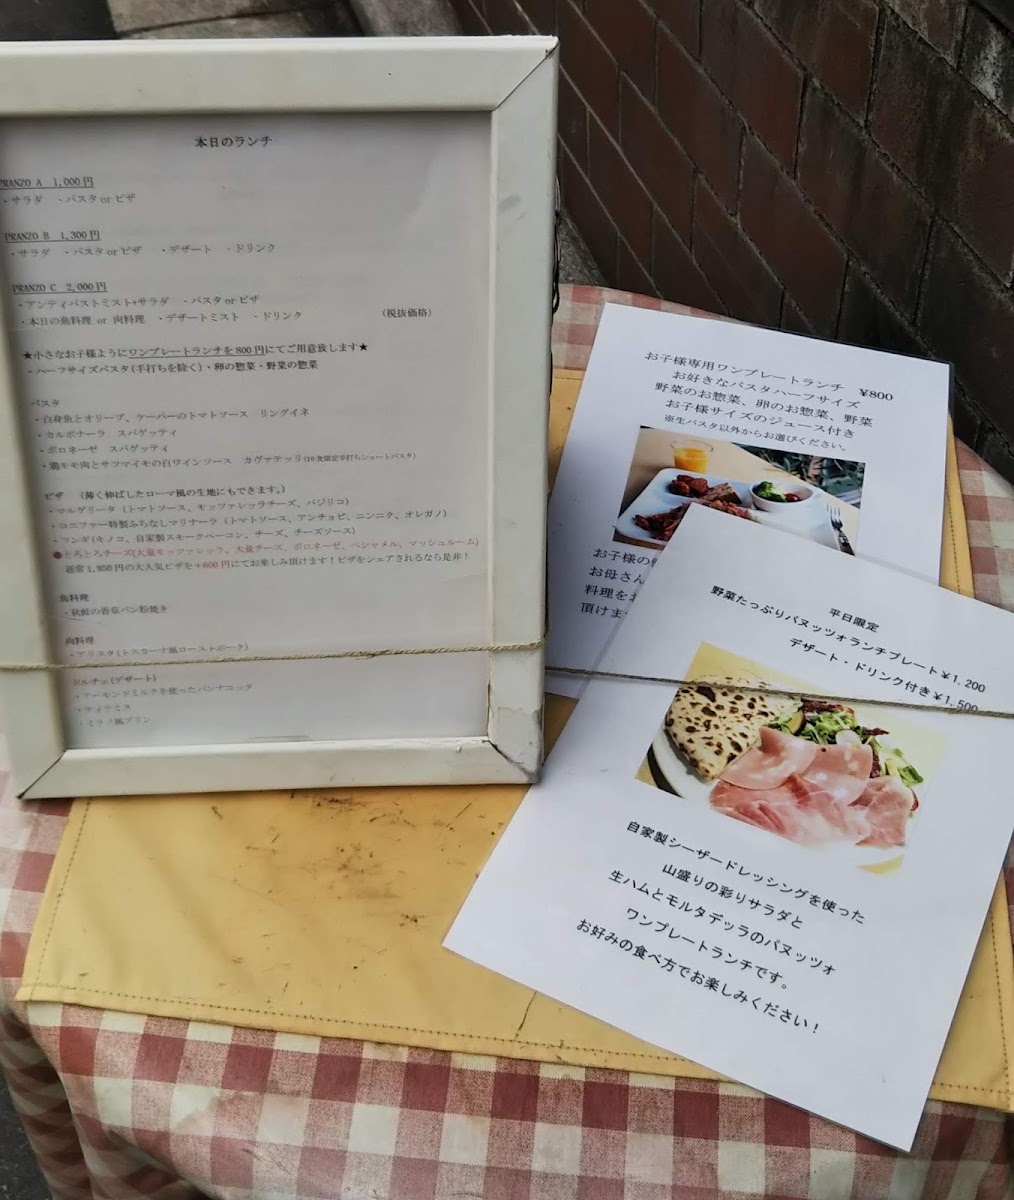 本日のランチ
PRANZO A 1,000円
・サラダ ・パスタ or ピザ
PRANZO B 1,300円
・サラダ ・パスタ or ピザ ・デザート ・ドリンク
PRANZO C 2,000円
・アンティパストミスト+サラダ ・パスタ or ピザ
・本日の魚料理 or 肉料理 ・デザートミスト ・ドリンク (税抜価格)
★小さなお子様ようにワンプレートランチを800円にてご用意致します★
・ハーフサイズパスタ(手打ちを除く)・卵の惣菜・野菜の惣菜
パスタ
・白身魚とオリーブ、ケーパーのトマトソース リングイネ
・カルボナーラ スパゲッティ
・ボロネーゼ スパゲッティ
・鶏モモ肉とサツマイモの白ワインソース カヴァテッリ(10食限定手打ちショートパスタ)
ピザ (薄く伸ばしたローマ風の生地にもできます。)
・マルゲリータ (トマトソース、モッツァレッラチーズ、バジリコ)
・コニファー特製ふちなしマリナーラ (トマトソース、アンチョビ、ニンニク、オレガノ)
・フンギ(キノコ、自家製スモークベーコン、チーズ、チーズソース)
●とろとろチーズ(大量モッツァレッラ、大量チーズ、ボロネーゼ、ベシャメル、マッシュルーム)
通常1,850円の大人気ピザを+600円にてお楽しみ頂けます！ピザをシェアされるなら是非！
魚料理
・秋鮭の香草パン粉焼き
肉料理
・アリスタ(トスカーナ風ローストポーク)
ドルチェ(デザート)
・アーモンドミルクを使ったパンナコッタ
・ティラミス
・ミラノ風プリン
お子様専用ワンプレートランチ ¥800
お好きなパスタハーフサイズ
野菜のお惣菜、卵のお惣菜、野菜
お子様サイズのジュース付き
※生パスタ以外からお選びください。
お子様の
お母さん
料理をお
頂けま
平日限定
野菜たっぷりパヌッツォランチプレート¥1,200
デザート・ドリンク付き¥1,500
自家製シーザードレッシングを使った
山盛りの彩りサラダと
生ハムとモルタデッラのパヌッツォ
ワンプレートランチです。
お好みの食べ方でお楽しみください！